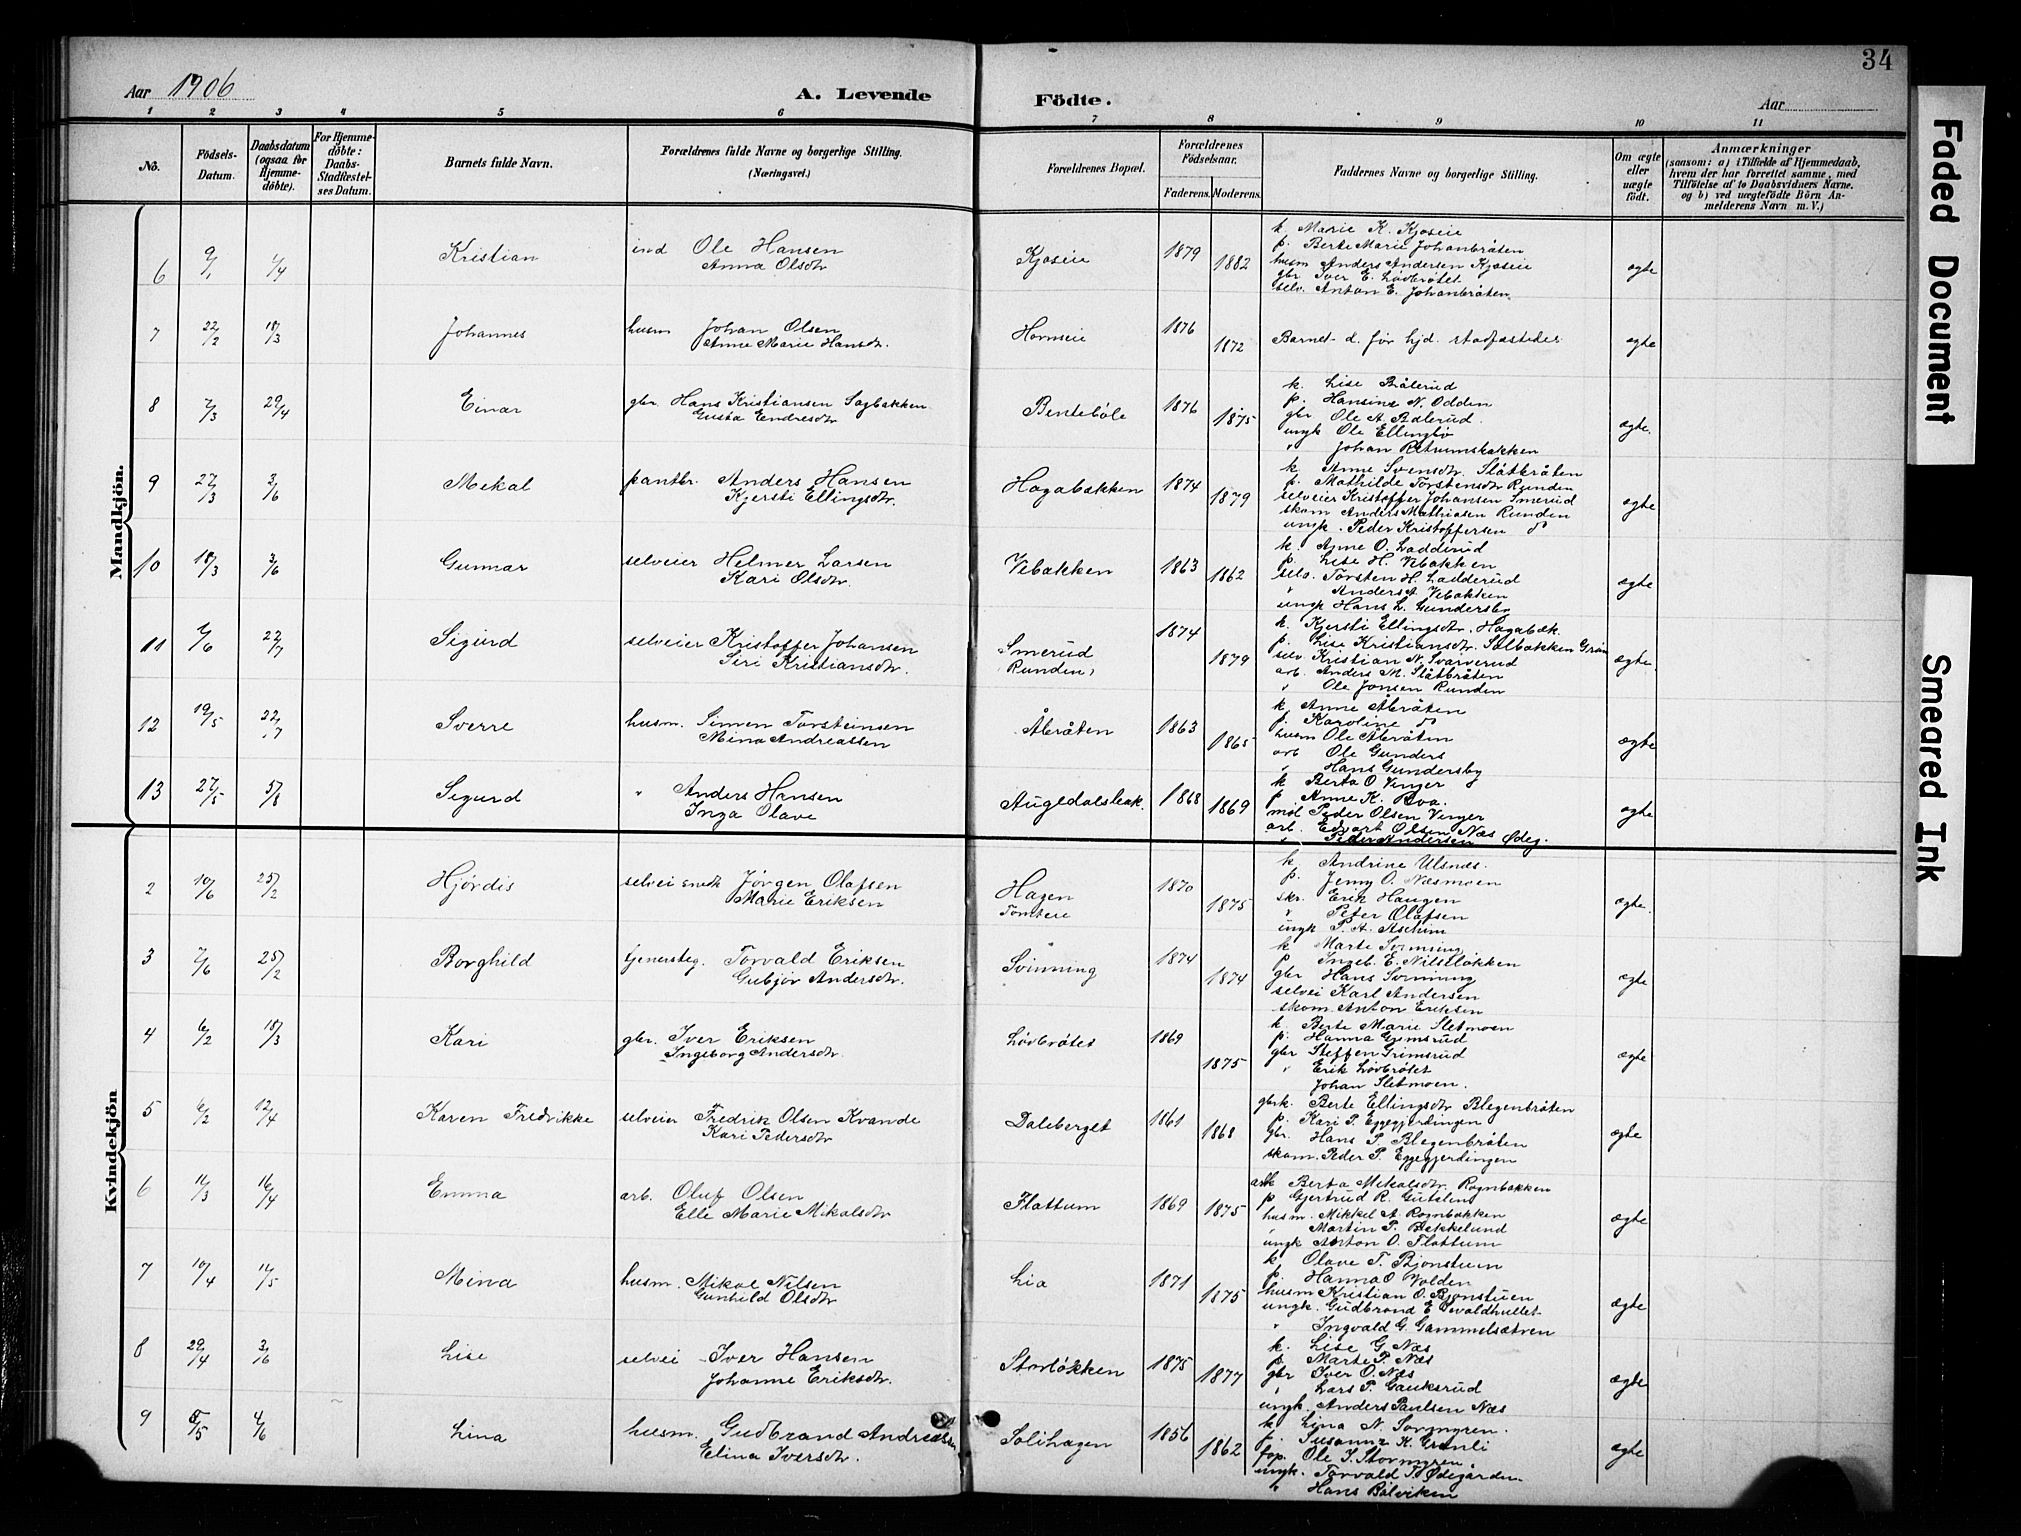 34
Aar 1906
A. Levende
Födte.
Aar
1 2 3 4 5 6 7 8 9 10 11
No.
Födsels-Datum.
Daabsdatum (ogsaa for Hjemme-döbte).
For Hjemme-döbte: Daabs-Stadfæstel-ses Datum.
Barnets fulde Navn.
Forældrenes fulde Navne og borgerlige Stilling.
(Næringsvei.)
Forældrenes Bopæl.
Forældrenes Födselsaar.
Faderens. Moderens.
Faddernes Navne og borgerlige Stilling.
Om ægte eller uægte födt.
Anmærkninger
(saasom: a) i Tilfælde af Hjemmedaab,
hvem der har forrettet samme, med
Tilföielse af to Daabsvidners Navne,
og b) ved uægtefödte Börn An-
melderens Navn m. V.)
Mandkjön.
6 9/1 4/4 Kristian ind Ole Hansen Kjoseie 1879 1882 ægte
Anna Olsdtr
k. Marie K. Kjoseie
p. Berte Marie Johanbråten
husm Anders Andersen Kjoseie
gbr Iver E. Løvbrøtet
selv. Anton E. Johanbråten.
7 22/2 18/3 Johannes husm Johan Olsen Hornseie 1876 1872 ægte
Anne Marie Hansdtr.
Barnet d. før hjd. stadfæstedes
8 7/3 29/4 Einar gbr. Hans Kristiansen Sagbakken Bentebøle 1876 1875 ægte.
Gusta Endresdtr
k. Lise Bålerud
p. Hansine N. Odden
gbr Ole A. Bålerud.
ungk Ole Ellingbø
" Johan Petrumsbakken
9 27/3 3/6 Mekal pantbr. Anders Hansen Hagabakken 1874 1879 ægte
Kjersti Ellingsdtr.
k. Anne Svensdtr. Slåtbråten
p. Mathilde Torstensdtr Runden
selveier Kristoffer Johansen Smerud
skom Anders Mathiasen Runden
ungk. Peder Kristoffersen do
10 18/3 3/6 Gunnar selveier Helmer Larsen Vebakken 1863 1862 ægte
Kari Olsdtr.
k. Anne O. Ladderud
p. Lise H. Vebakken
selv. Torsten H. Ladderud
" Anders A Vebakken
ungk Hans L. Gundersby
11 22/7 Sigurd selveier Kristoffer Johansen Smerud (Runden) 1874 1879 ægte.
Siri Kristiansdtr.
k. Kjersti Ellingsdtr. Hagabæk.
p. Lise Kristiansdtr. Solbakken Grøn
selv. Kristian N. Svarverud
arb. Anders M. Slåtbråten
" Ole Jonsen Runden
12 19/5 22/7 Sverre husm. Simen Torsteinsen Åbråten 1863 1865 ægte
Mina Andreassen
k. Anne Åbråten
p. Karoline do
husm Ole Åbråten
arb Ole Gunders
" Hans Gundersby
13 27/5 5/8 Sigurd " Anders Hansen Augedalsbak. 1868 1869 ægte
Inga Olave
k Berta O. Vinger
p. Anne K. Roa.
møl Peder Olsen Vinger
arb. Edvart Olsen Næs Ødeg.
" Peder Andersen
Kvindekjön
2 25/2 Hjørdis selvei snedk Jörgen Olafsen Hagen Tomteie 1870 1875 ægte.
Marie Eriksen
k. Andrine Ulsnæs.
p. Jenny O. Næsmoen
skr. Erik Haugen
" Peter Olafsen
ungk P. A. Aschim
3 25/2 Borghild Torvald Eriksen Svinning 1874 1874 ægte
Gubjør Andersdtr.
k Marte Svinning
p Ingeb. E. Nilsløkken
gbr Hans Svinning
selvei Karl Andersen
skom. Anton Eriksen
4 6/2 18/3 Kari gbr. Iver Eriksen Løvbrøtet 1869 1875 ægte
Ingeborg Andersdtr.
k. Berte Marie Sletmoen
p. Hanna Grimsrud
gbr Steffen Grimsrud
" Erik Løvbrøtet
Johan Sletmoen.
5 6/2 12/4 Karen Fredrikke selveier Fredrik Olsen Kvande Dalsberget 1861 1868 ægte
Kari Pedersdtr
gbrk. Berte Ellingsdtr Blegenbråten
p. Kari P. Eggegjerdingen
gbr. Hans P. Blegenbråten
skom. Peder P. Eggegjerdingen
6 11/3 16/4 Emma arb. Oluf Olsen Flattum 1869 1875 ægte
Elle Marie Mikalsdtr
arbk Berta Mikalsdtr. Rognbakken
p Gjertrud R. Gutelin
husm. Mikkel A Rognbakken
" Martin P. Bækkelund
ungk Anton O. Flattum
7 10/4 Mina husm. Mikal Nilsen Lia 1871 1875 ægte
Gunhild Olsdtr
k. Olave T. Bjonstuen
p. Hanna O Volden
husm Kristian O. Bjonstuen
ungk. Gudbrand E
" Ingvald G. Gammelsætren
8 29/4 3/6 Lise selvei Iver Hansen Storløkken 1875 1877 ægte
Johanne Eriksdtr.
k. Lise G. Næs
p. Marte P. Næs
gbr Iver O. Næs
" Lars P. Gauksrud
ungk. Anders Paulsen Næs
9 8/5 4/6 Lina husm. Gudbrand Andreassen Solihagen 1856 1862 ægte
Elina Iversdtr.
k Lina N.
p. Susanne K. Grønli
fop. Ole J. Stormyren.
ungk. Torvald T. Ødegården.
" Hans Bålviken
Faded Document
Smeared Ink